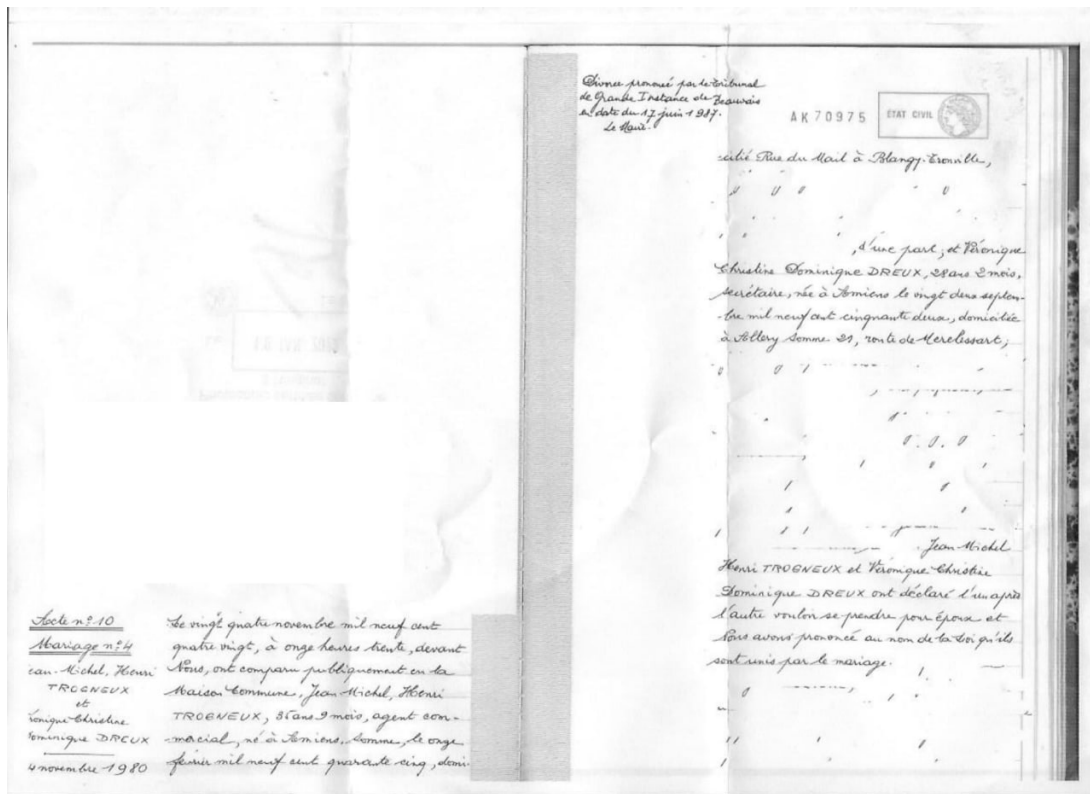 Acte nº 10
Mariage nº 4
ean-Michel, Henri
TROGNEUX
et
ronique Christine
ominique DREUX
4 novembre 1980
Le vingt quatre novembre mil neuf cent
quatre vingt, à onze heures trente, devant
Nous, ont comparu publiquement en la
Maison Commune, Jean Michel, Henri
TROGNEUX, 35 ans 9 mois, agent com-
-mercial, né à Amiens, Somme, le onze
février mil neuf cent quarante cinq, domi-
Divorce prononcé par le Tribunal
de Grande Instance de Beauvais
en date du 17 juin 1987.
Le Maire.
AK 70975
ÉTAT CIVIL
-cilié Rue du Mail à Blangy-Tronville,
, d'une part, et Véronique
Christine Dominique DREUX, 28 ans 2 mois,
secrétaire, née à Amiens le vingt deux septem-
-bre mil neuf cent cinquante deux, domiciliée
à Allery Somme 21, route de Merelessart,
Jean-Michel
Henri TROGNEUX et Véronique Christine
Dominique DREUX ont déclaré l'un après
l'autre vouloir se prendre pour époux et
Nous avons prononcé au nom de la Loi qu'ils
sont unis par le mariage.